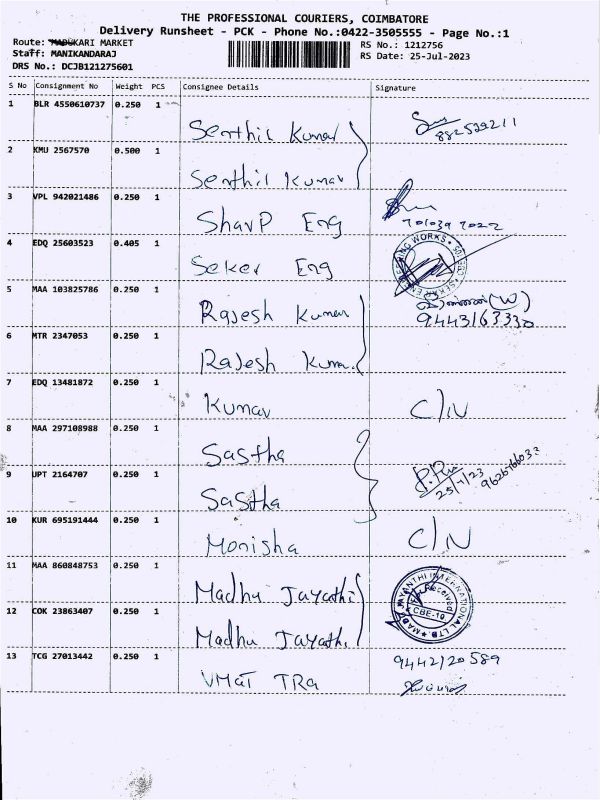 THE PROFESSIONAL COURIERS, COIMBATORE
Delivery Runsheet - PCK - Phone No.:0422-3505555 - Page No.:1
Route: MADUKARI MARKET
Staff: MANIKANDARAJ
DRS No.: DCJB121275601
RS No.: 1212756
RS Date: 25-Jul-2023
S No Consignment No Weight PCS Consignee Details Signature
1 BLR 4550610737 0.250 1 Senthil Kumar
882529211
2 KMU 2567570 0.500 1 Senthil Kumar
3 VPL 942021486 0.250 1 Sharp Eng
4 EDQ 25603523 0.405 1 Seker Eng
5 MAA 103825786 0.250 1 Rajesh Kumar
(W)
9443163330
6 MTR 2347053 0.250 1 Rajesh Kumar
7 EDQ 13481872 0.250 1 Kumar C/N
8 MAA 297108988 0.250 1 Sastha
9 UPT 2164707 0.250 1 Sastha
25/7/23
10 KUR 695191444 0.250 1 Monisha C/N
11 MAA 860848753 0.250 1 Madhu Jayathi
CBE-19
12 COK 23863407 0.250 1 Madhu Jayathi
13 TCG 27013442 0.250 1 VMGT TRa
9442120589